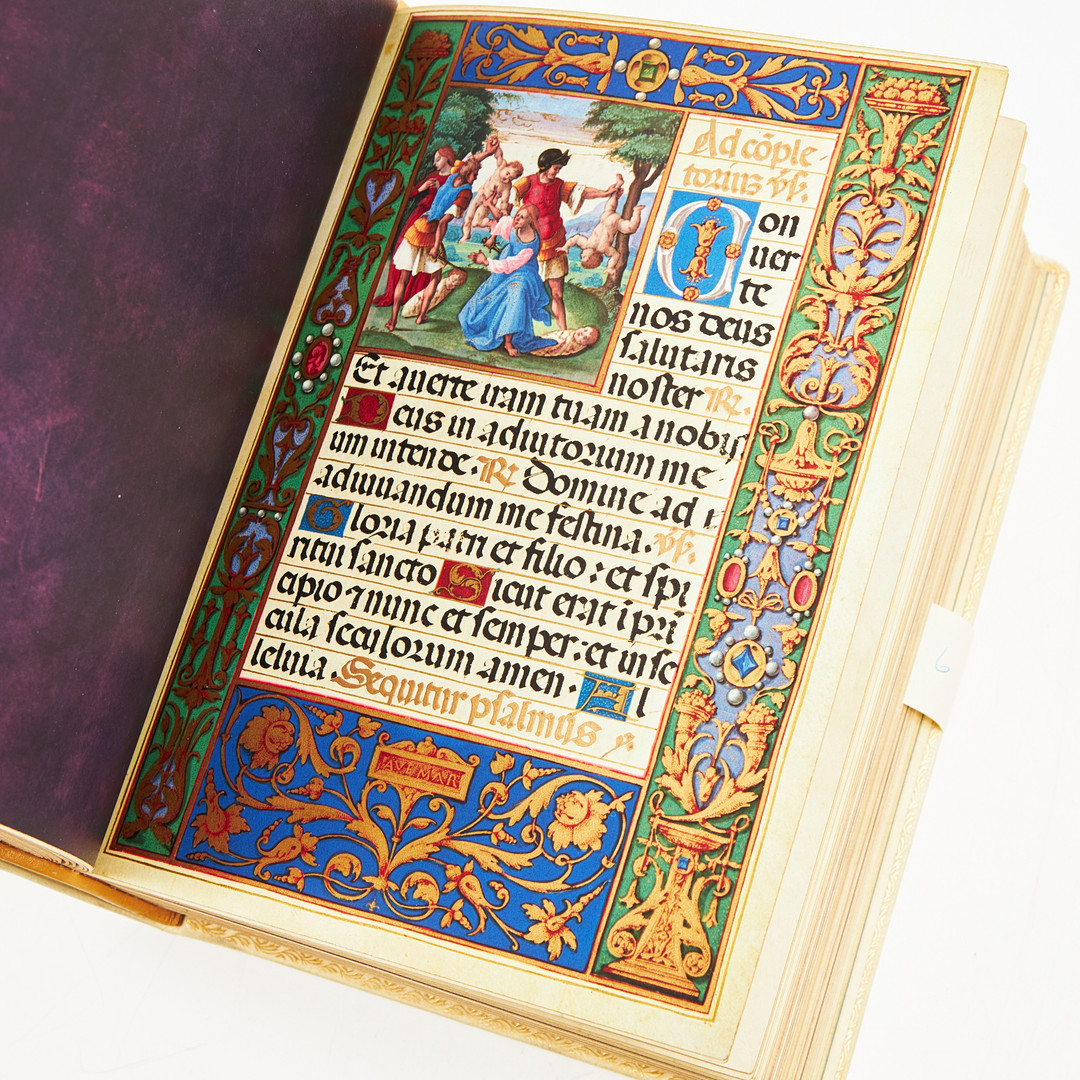 Ad cõple-
torium v̄s.
Con
uer
te
nos deus
salutaris
noster R.
Et auerte iram tuam a nobis
Deus in adiutorium me-
um intende. R Domine ad
adiuuandum me festina. v̄s.
Gloria patri et filio: et spi
ritui sancto Sicut erat i pri
cipio ⁊ nunc et semper: et in se
cula seculorum amen. Al
leluia. Sequitur psalmus
AVE MAR
6